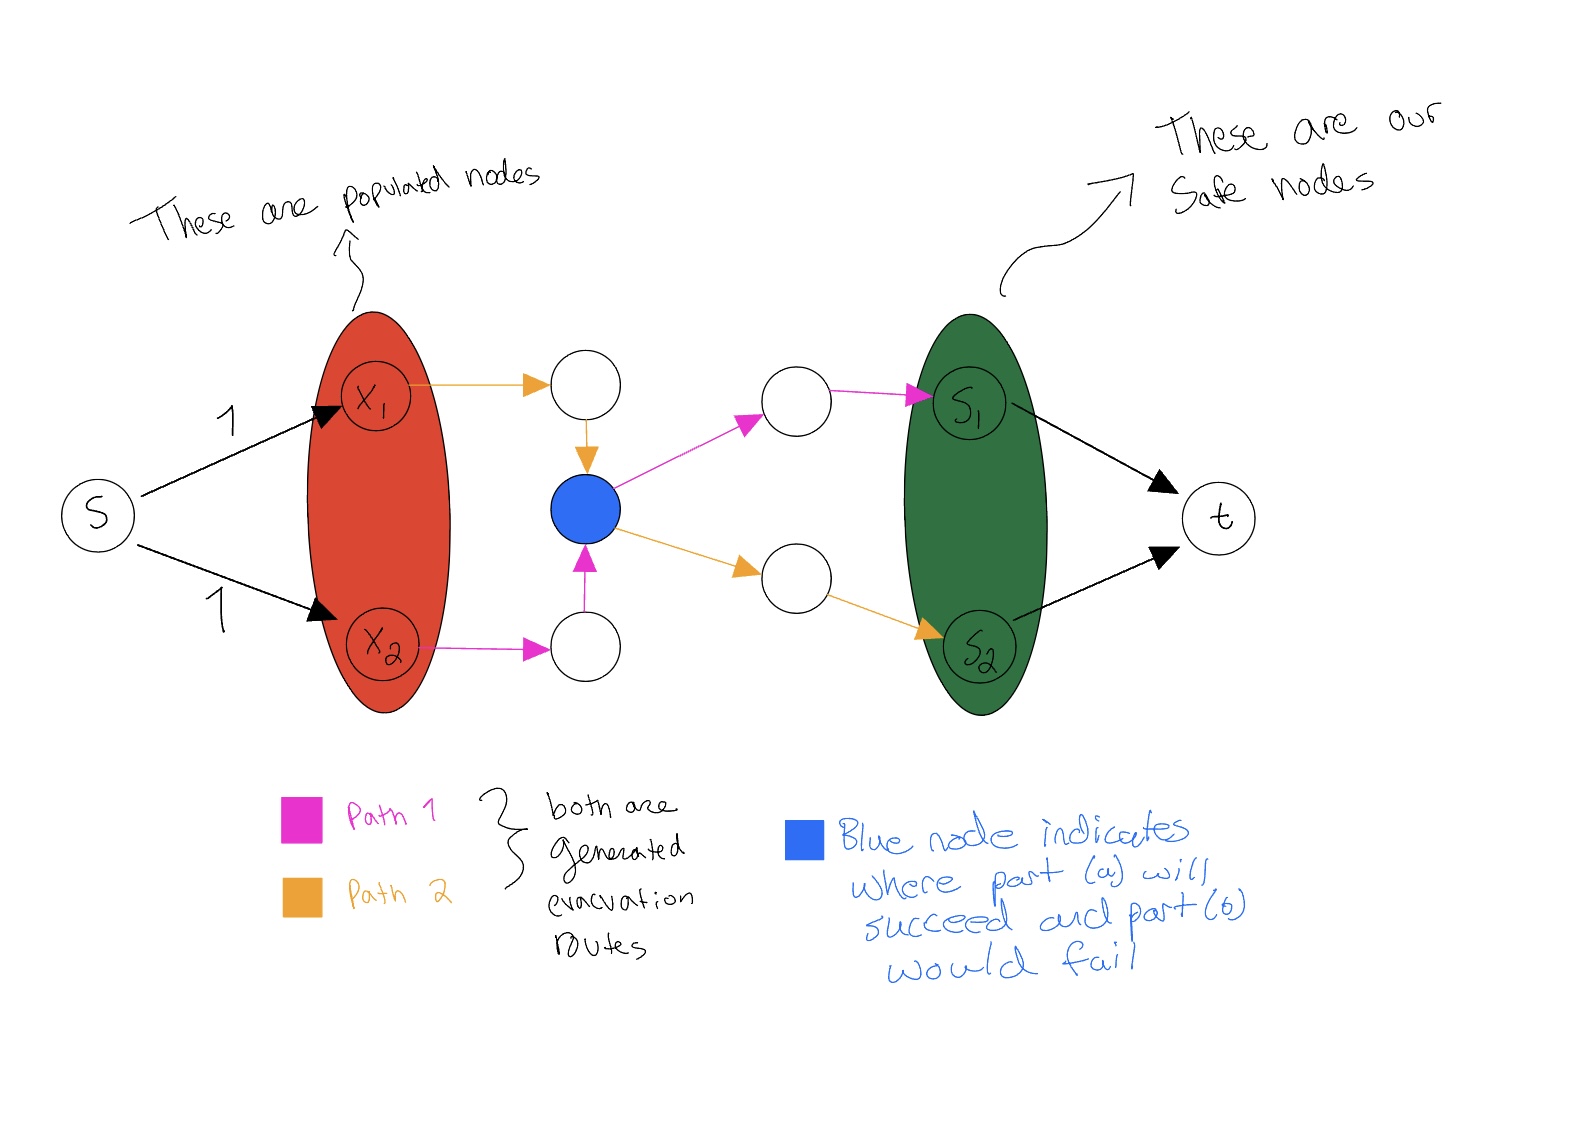 These are our
Safe nodes
These are populated nodes
1
X1
S1
S
t
1
X2
S2
Path 1
Path 2
both are
generated
evacuation
routes
Blue node indicates
where part (a) will
succeed and part (b)
would fail